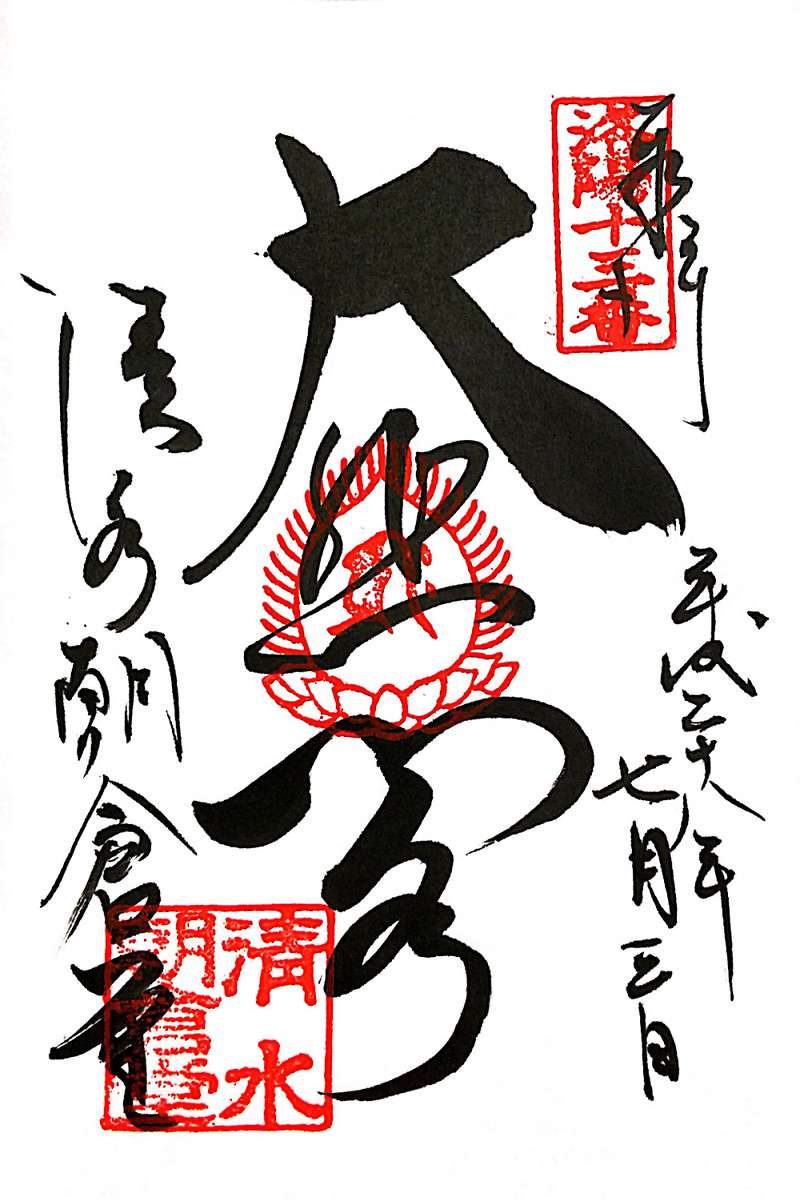 奉拝
洛陽十三番
平成二十八年
七月三日
大悲閣
清水朝倉堂
清水
朝倉堂